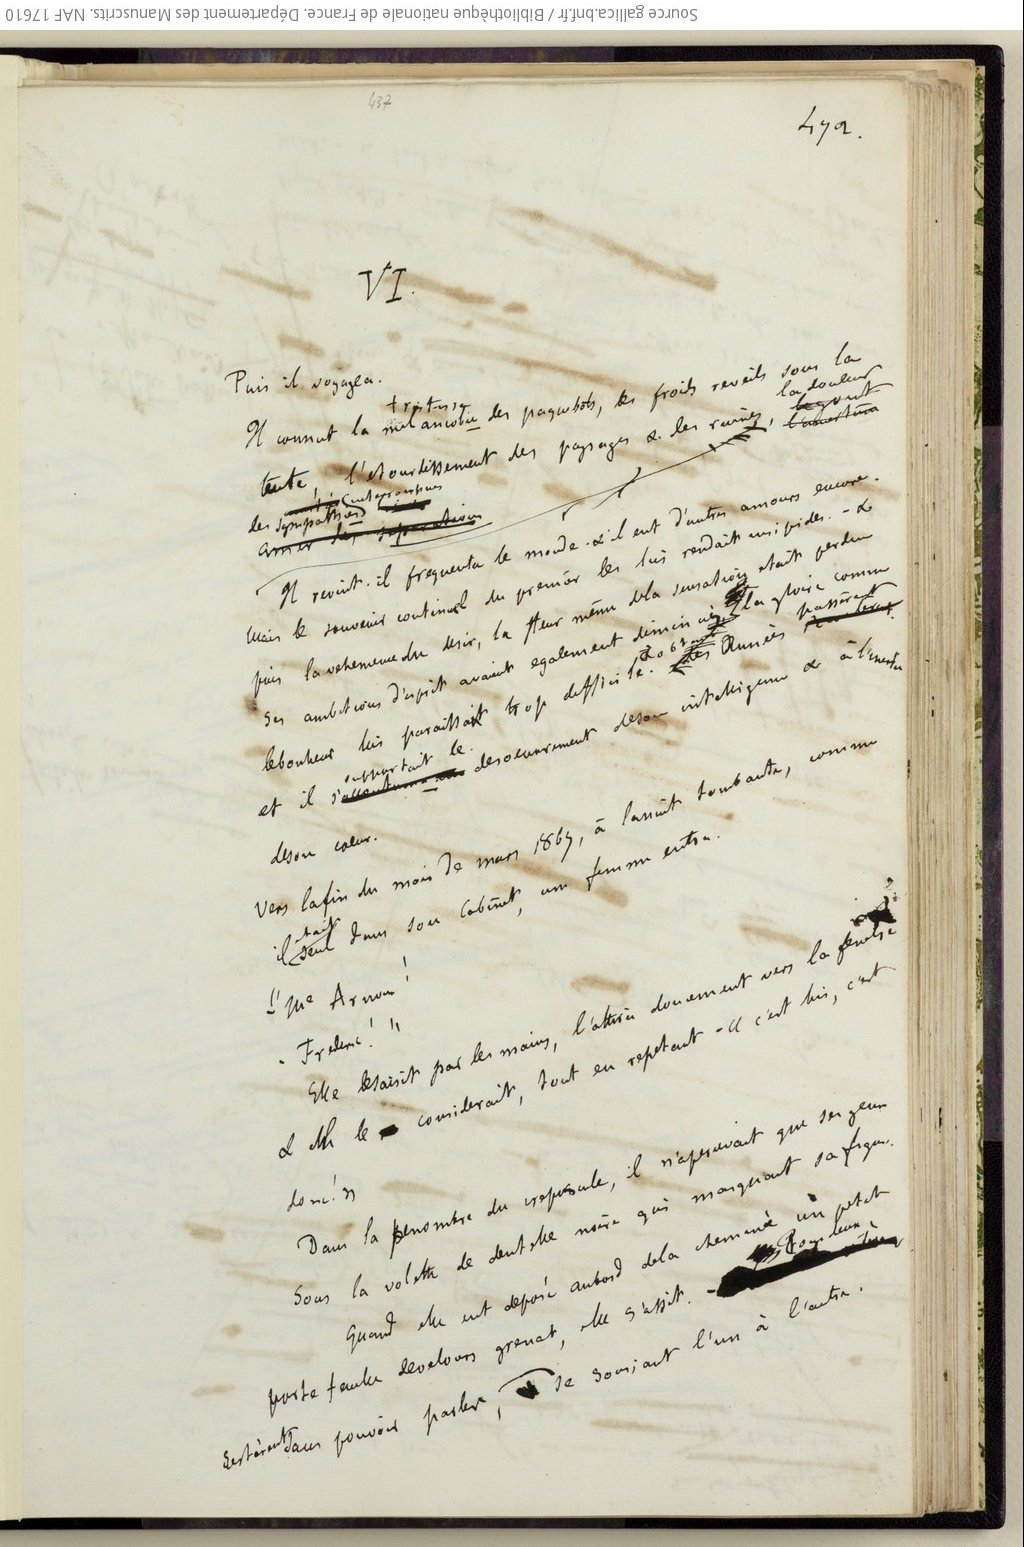 Source gallica.bnf.fr / Bibliothèque nationale de France. Département des Manuscrits. NAF 17610
437
472.
VI.
Puis il voyagea.
tristesse
Il connut la mélancolie des paquebots, les froids réveils sous la
la douleur
tente, l'étourdissement des paysages & des ruines, l'amertume
interrompues
des sympathies
amer des séparations
Il revint. il fréquenta le monde. & il eut d'autres amours encore.
Mais le souvenir continuel du premier les lui rendait insipides. - &
puis la véhémence du désir, la fleur même de la sensation était perdue
Ses ambitions d'esprit avaient également diminué. la gloire comme
le bonheur lui paraissait trop difficile. Des années passèrent
supportait le
et il désoeuvrement de son intelligence & à l'inertie
de son coeur.
Vers la fin du mois de mars 1867, à la nuit tombante, comme
était
il seul dans son cabinet, une femme entra.
" Me Arnoux!
- Frédéric! "
Elle le saisit par les mains, l'attira doucement vers la fenêtre
& elle le considérait, tout en répétant - "c'est lui, c'est
donc! "
Dans la pénombre du crépuscule, il n'apercevait que ses yeux
sous la voilette de dentelle noire qui masquait sa figure.
Quand elle eut déposé au bord de la cheminée un petit
portefeuille de velours grenat, elle s'assit. Tous deux
restèrent sans pouvoir parler, se souriant l'un à l'autre.